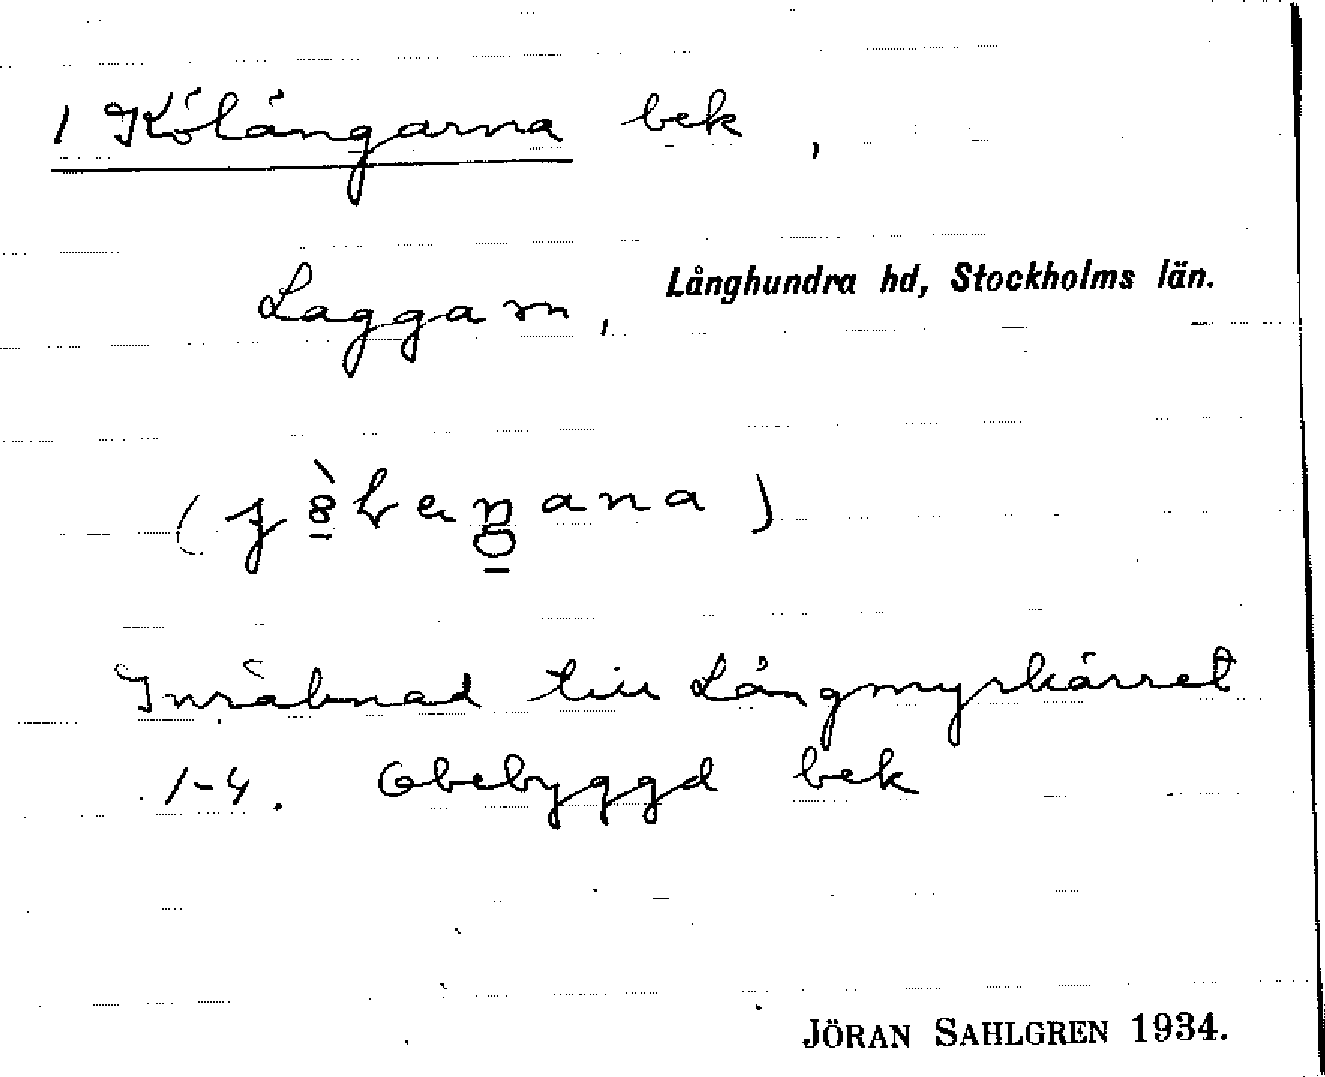 1 Kölängarna bek,
Laggam, Långhundra hd, Stockholms län.
Inräknad till Långmyrkärret
1-4. Obebyggd bek
JÖRAN SAHLGREN 1934.